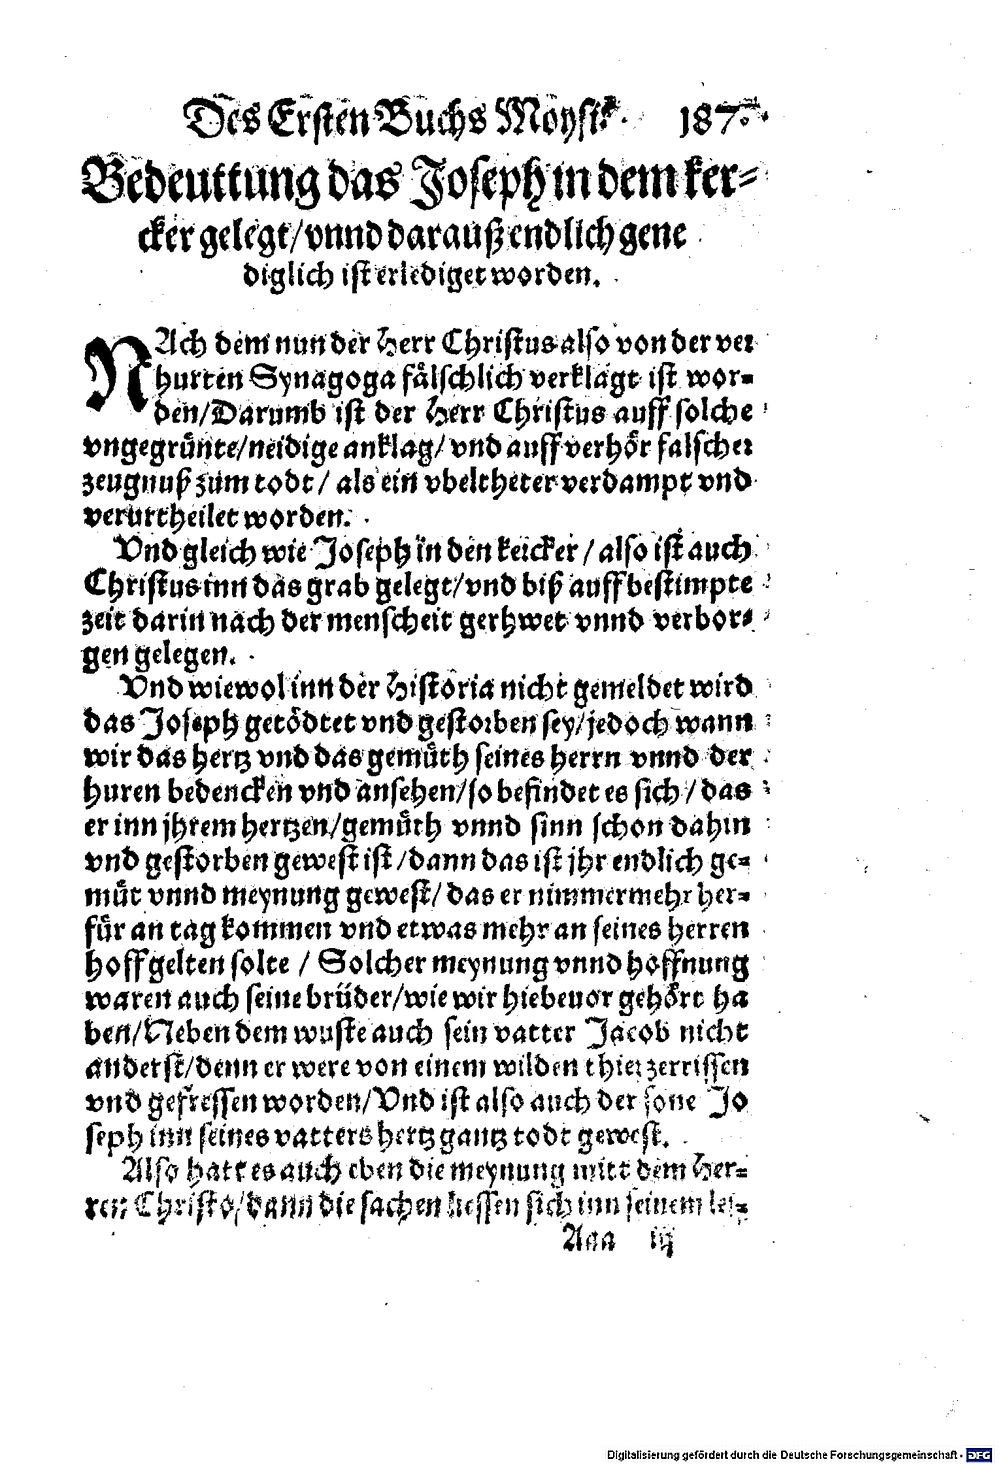 Des Ersten Buchs Moysis. 187.
Bedeuttung das Joseph in dem ker-
cker gelegt/vnnd darauß endlich gene
diglich ist erlediget worden.
NAch dem nun der Herr Christus also von der ver
hurten Synagoga fälschlich verklagt ist wor-
den/Darumb ist der Herr Christus auff solche
vngegrünte/neidige anklag/vnd auff verhör falscher
zeugnuß zum todt/als ein vbeltheter verdampt vnd
verurtheilet worden.
Vnd gleich wie Joseph in den kercker/also ist auch
Christus inn das grab gelegt/vnd biß auff bestimpte
zeit darin nach der menscheit gerhwet vnnd verbor-
gen gelegen.
Vnd wiewol inn der Historia nicht gemeldet wird
das Joseph getödtet vnd gestorben sey/jedoch wann
wir das hertz vnd das gemüth seines herrn vnnd der
huren bedencken vnd ansehen/so befindet es sich/das
er inn jhrem hertzen/gemüth vnnd sinn schon dahin
vnd gestorben gewest ist/dann das ist jhr endlich ge-
müt vnnd meynung gewest/das er nimmermehr her-
für an tag kommen vnd etwas mehr an seines herren
hoff gelten solte/Solcher meynung vnnd hoffnung
waren auch seine brüder/wie wir hiebeuor gehört ha
ben/Neben dem wuste auch sein vatter Jacob nicht
anderst/denn er were von einem wilden thier zerrissen
vnd gefressen worden/Vnd ist also auch der sone Jo
seph inn seines vatters hertz gantz todt gewest.
Also hatt es auch eben die meynung mitt dem Her-
ren Christo/dann die sachen liessen sich inn seinem lei-
Aaa iij
Digitalisierung gefördert durch die Deutsche Forschungsgemeinschaft - DFG